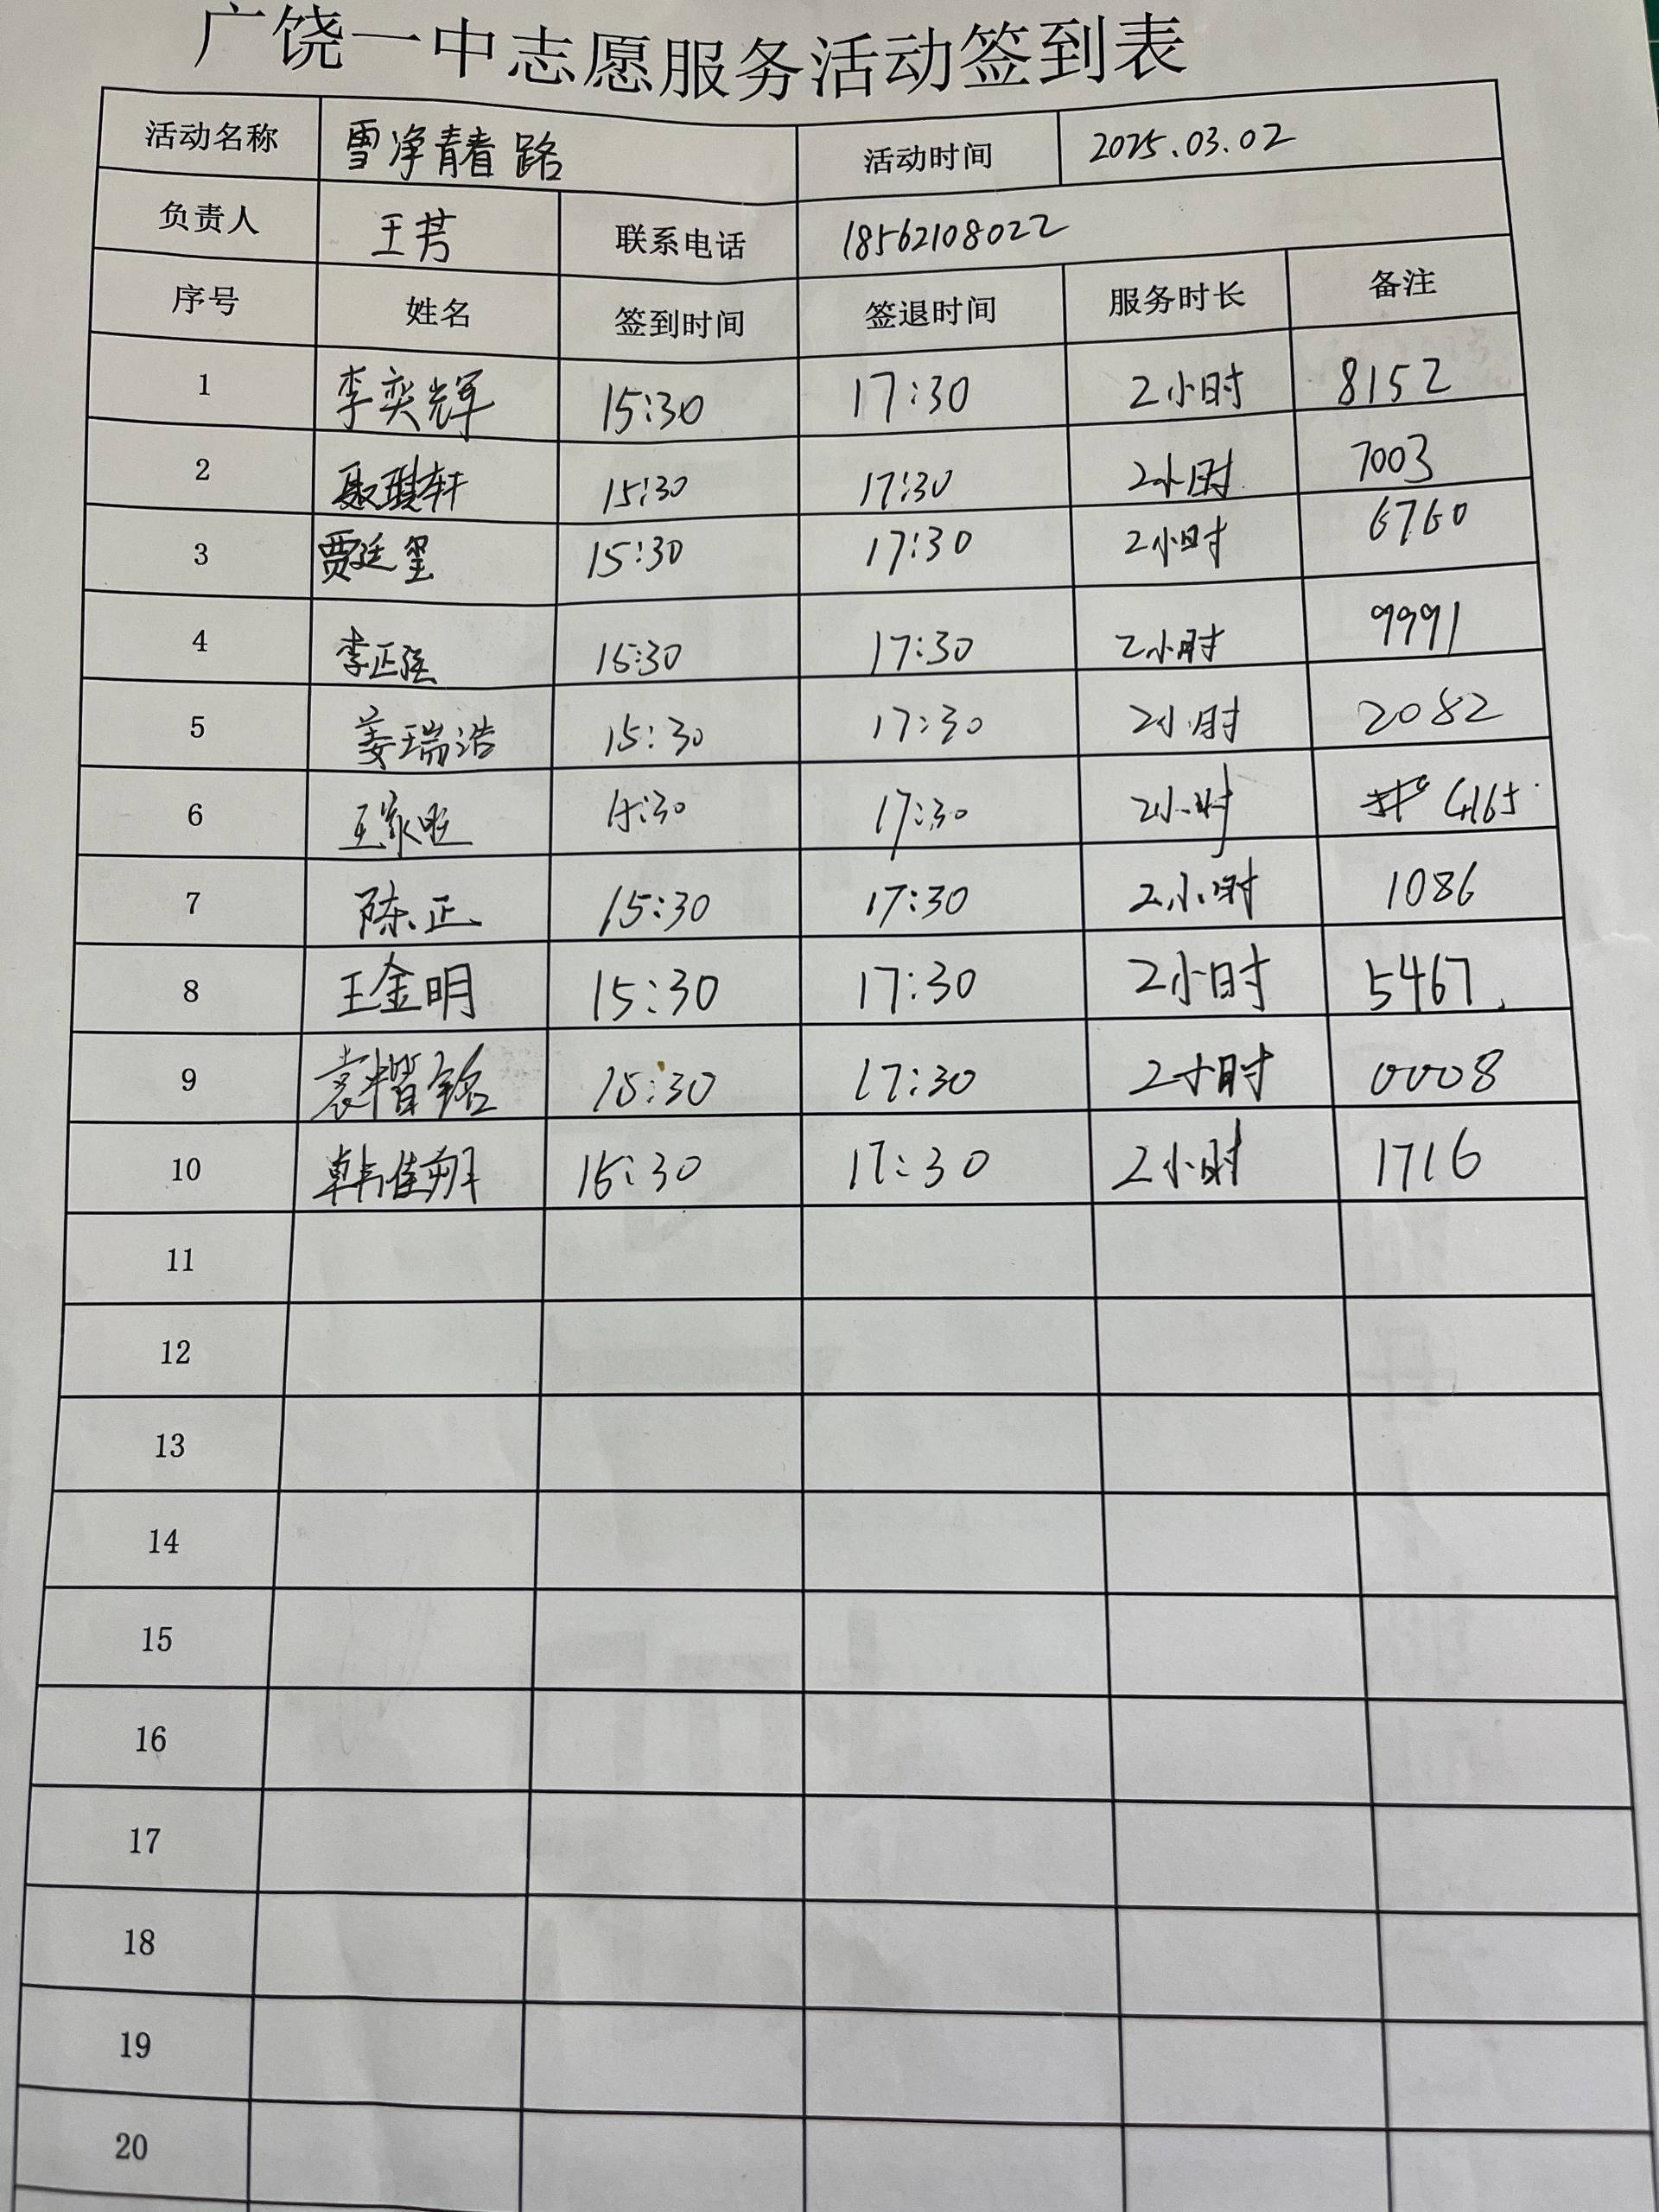 广饶一中志愿服务活动签到表
活动名称 雪净青春路 活动时间 2025.03.02
负责人 王芳 联系电话 18562108022
序号 姓名 签到时间 签退时间 服务时长 备注
1 李奕辉 15:30 17:30 2小时 8152
2 聂琪轩 15:30 17:30 2小时 7003
3 贾廷玺 15:30 17:30 2小时 6760
4 李正 15:30 17:30 2小时 9991
5 姜瑞浩 15:30 17:30 2小时 2082
6 王家旺 15:30 17:30 2小时 4165
7 陈正 15:30 17:30 2小时 1086
8 王金明 15:30 17:30 2小时 5467
9 袁铭 15:30 17:30 2小时 0008
10 韩佳朔 15:30 17:30 2小时 1716
11
12
13
14
15
16
17
18
19
20